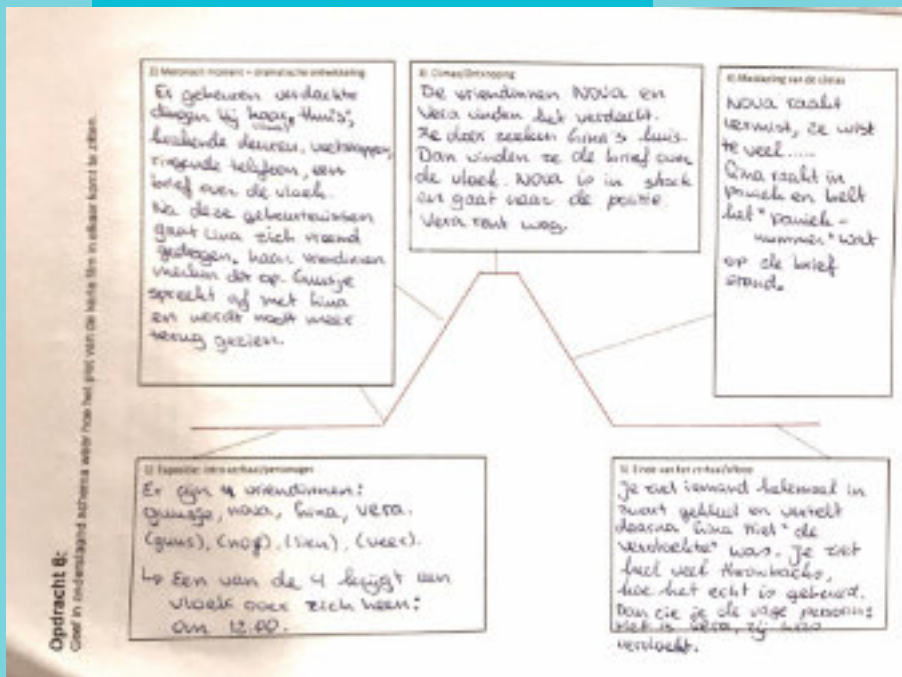 Opdracht 8:
Geef in onderstaand schema weer hoe het plot van de korte film in elkaar komt te zitten.
2) Motorisch moment – dramatische ontwikkeling
Er gebeuren verdachte
dingen bij haar thuis;
krakende deuren, voetstappen,
ringende telefoon, een
brief over de vloek.
Na deze gebeurtenissen
gaat Lina zich vreemd
gedragen, haar vriendinnen
merken dit op. Guusje
spreekt af met Lina
en wordt nooit meer
terug gezien.
3) Climax/Ontknoping
De vriendinnen Nova en
Vera vinden het verdacht.
Ze door zoeken Lina's huis.
Dan vinden ze de brief over
de vloek. Nova is in shock
en gaat naar de politie.
Vera rent weg.
4) Afwikkeling van de climax
Nova raakt
vermist, ze wist
te veel.....
Lina raakt in
paniek en belt
het "paniek-
nummer" wat
op de brief
stond.
1) Expositie: intro verhaal/personages
Er zijn 4 vriendinnen:
guusje, nova, Lina, vera.
(guus), (nof), (lien), (veer).
↳ Een van de 4 krijgt een
vloek over zich heen:
om 12.00.
5) Einde van het verhaal/
Je ziet iemand helemaal in
zwart gekleed en vertelt
daarna Lina niet "de
verdachte" was. Je ziet
heel veel throwbacks,
hoe het echt is gebeurd.
Dan zie je de vage persoon:
Het is Vera, zij was
vervloekt.